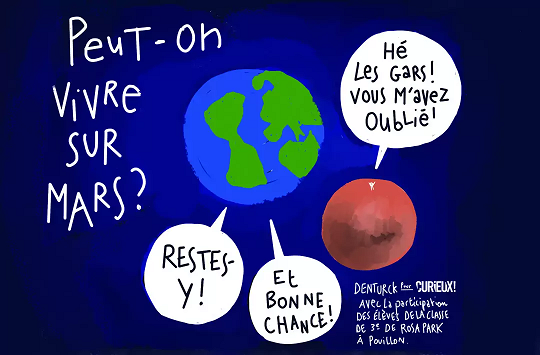 Peut-on
vivre
sur
Mars?
Hé
les gars!
vous m'avez
oublié!
Restes-
y!
Et
bonne
chance!
Denturck pour CURIEUX!
Avec la participation
des élèves de la classe
de 3e de Rosa Park
à Pouillon.